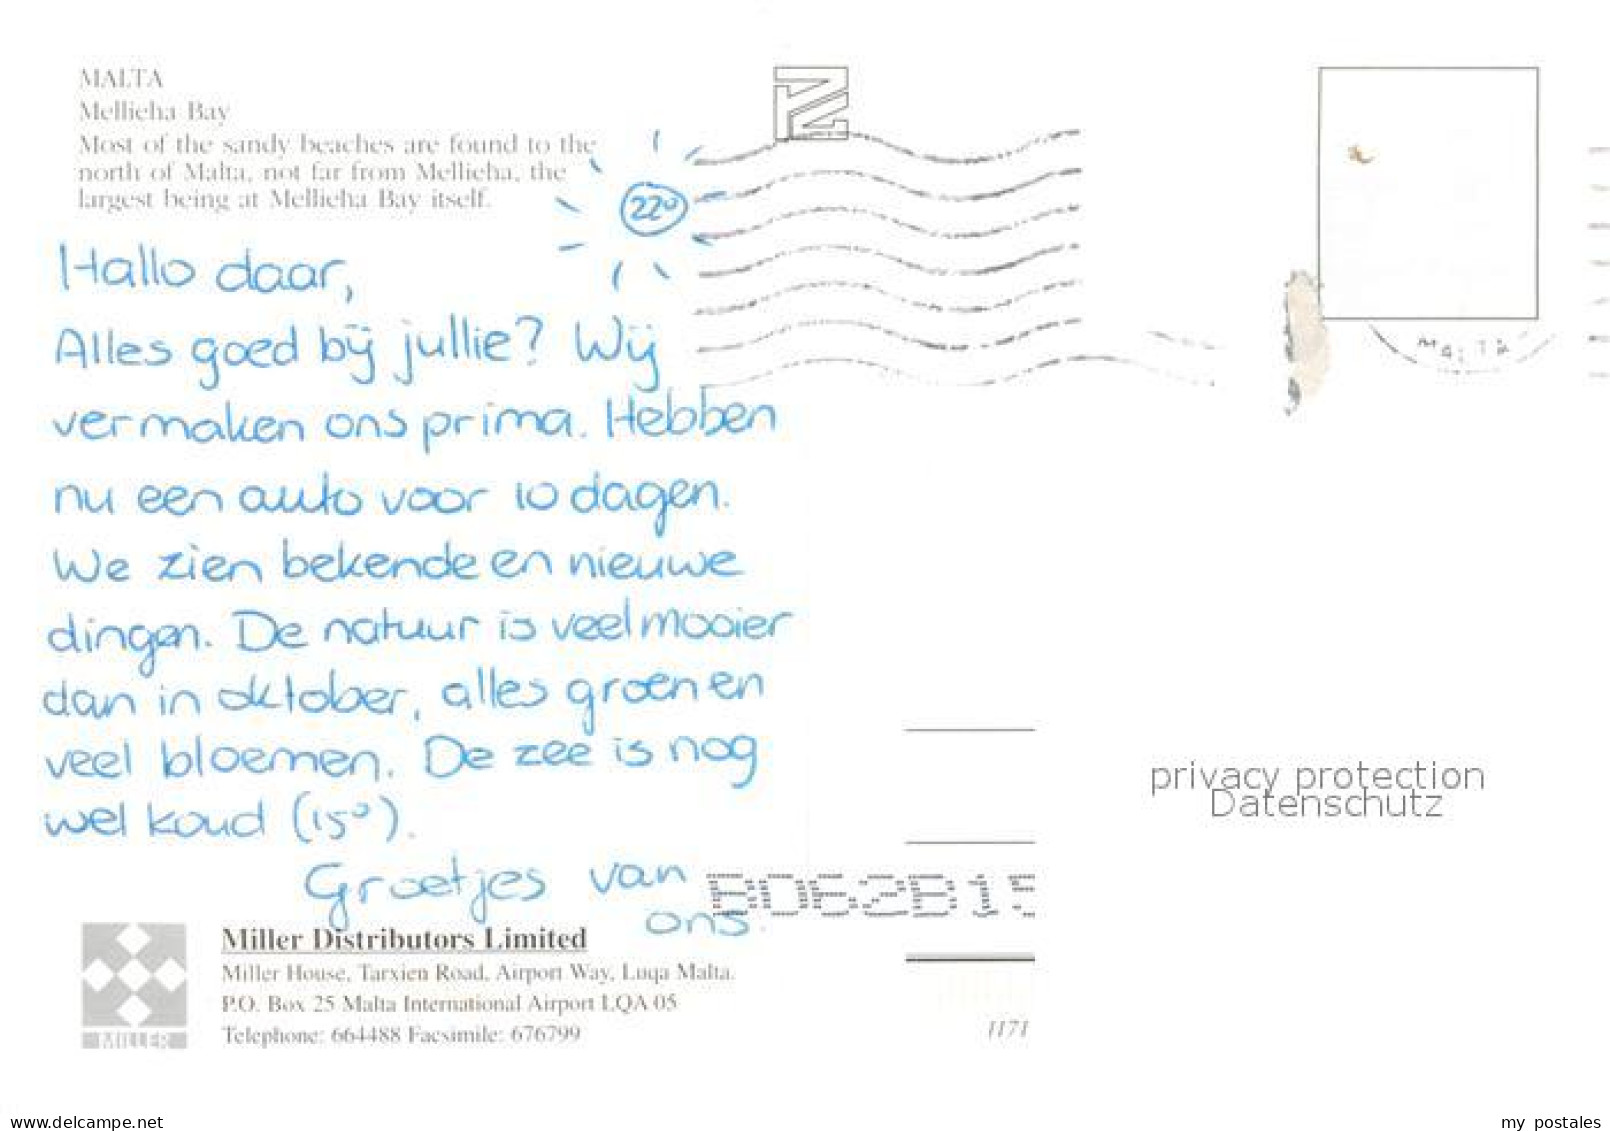 MALTA
Mellieha Bay
Most of the sandy beaches are found to the
north of Malta, not far from Mellieha, the
largest being at Mellieha Bay itself.
22°
Hallo daar,
Alles goed bij jullie? Wij
vermaken ons prima. Hebben
nu een auto voor 10 dagen.
We zien bekende en nieuwe
dingen. De natuur is veel mooier
dan in oktober, alles groen en
veel bloemen. De zee is nog
wel koud (15°).
Groetjes van
ons.
MALTA
privacy protection
Datenschutz
Miller Distributors Limited
Miller House, Tarxien Road, Airport Way, Luqa Malta.
P.O. Box 25 Malta International Airport LQA 05
Telephone: 664488 Facsimile: 676799
MILLER
1171
www.delcampe.net
my postales